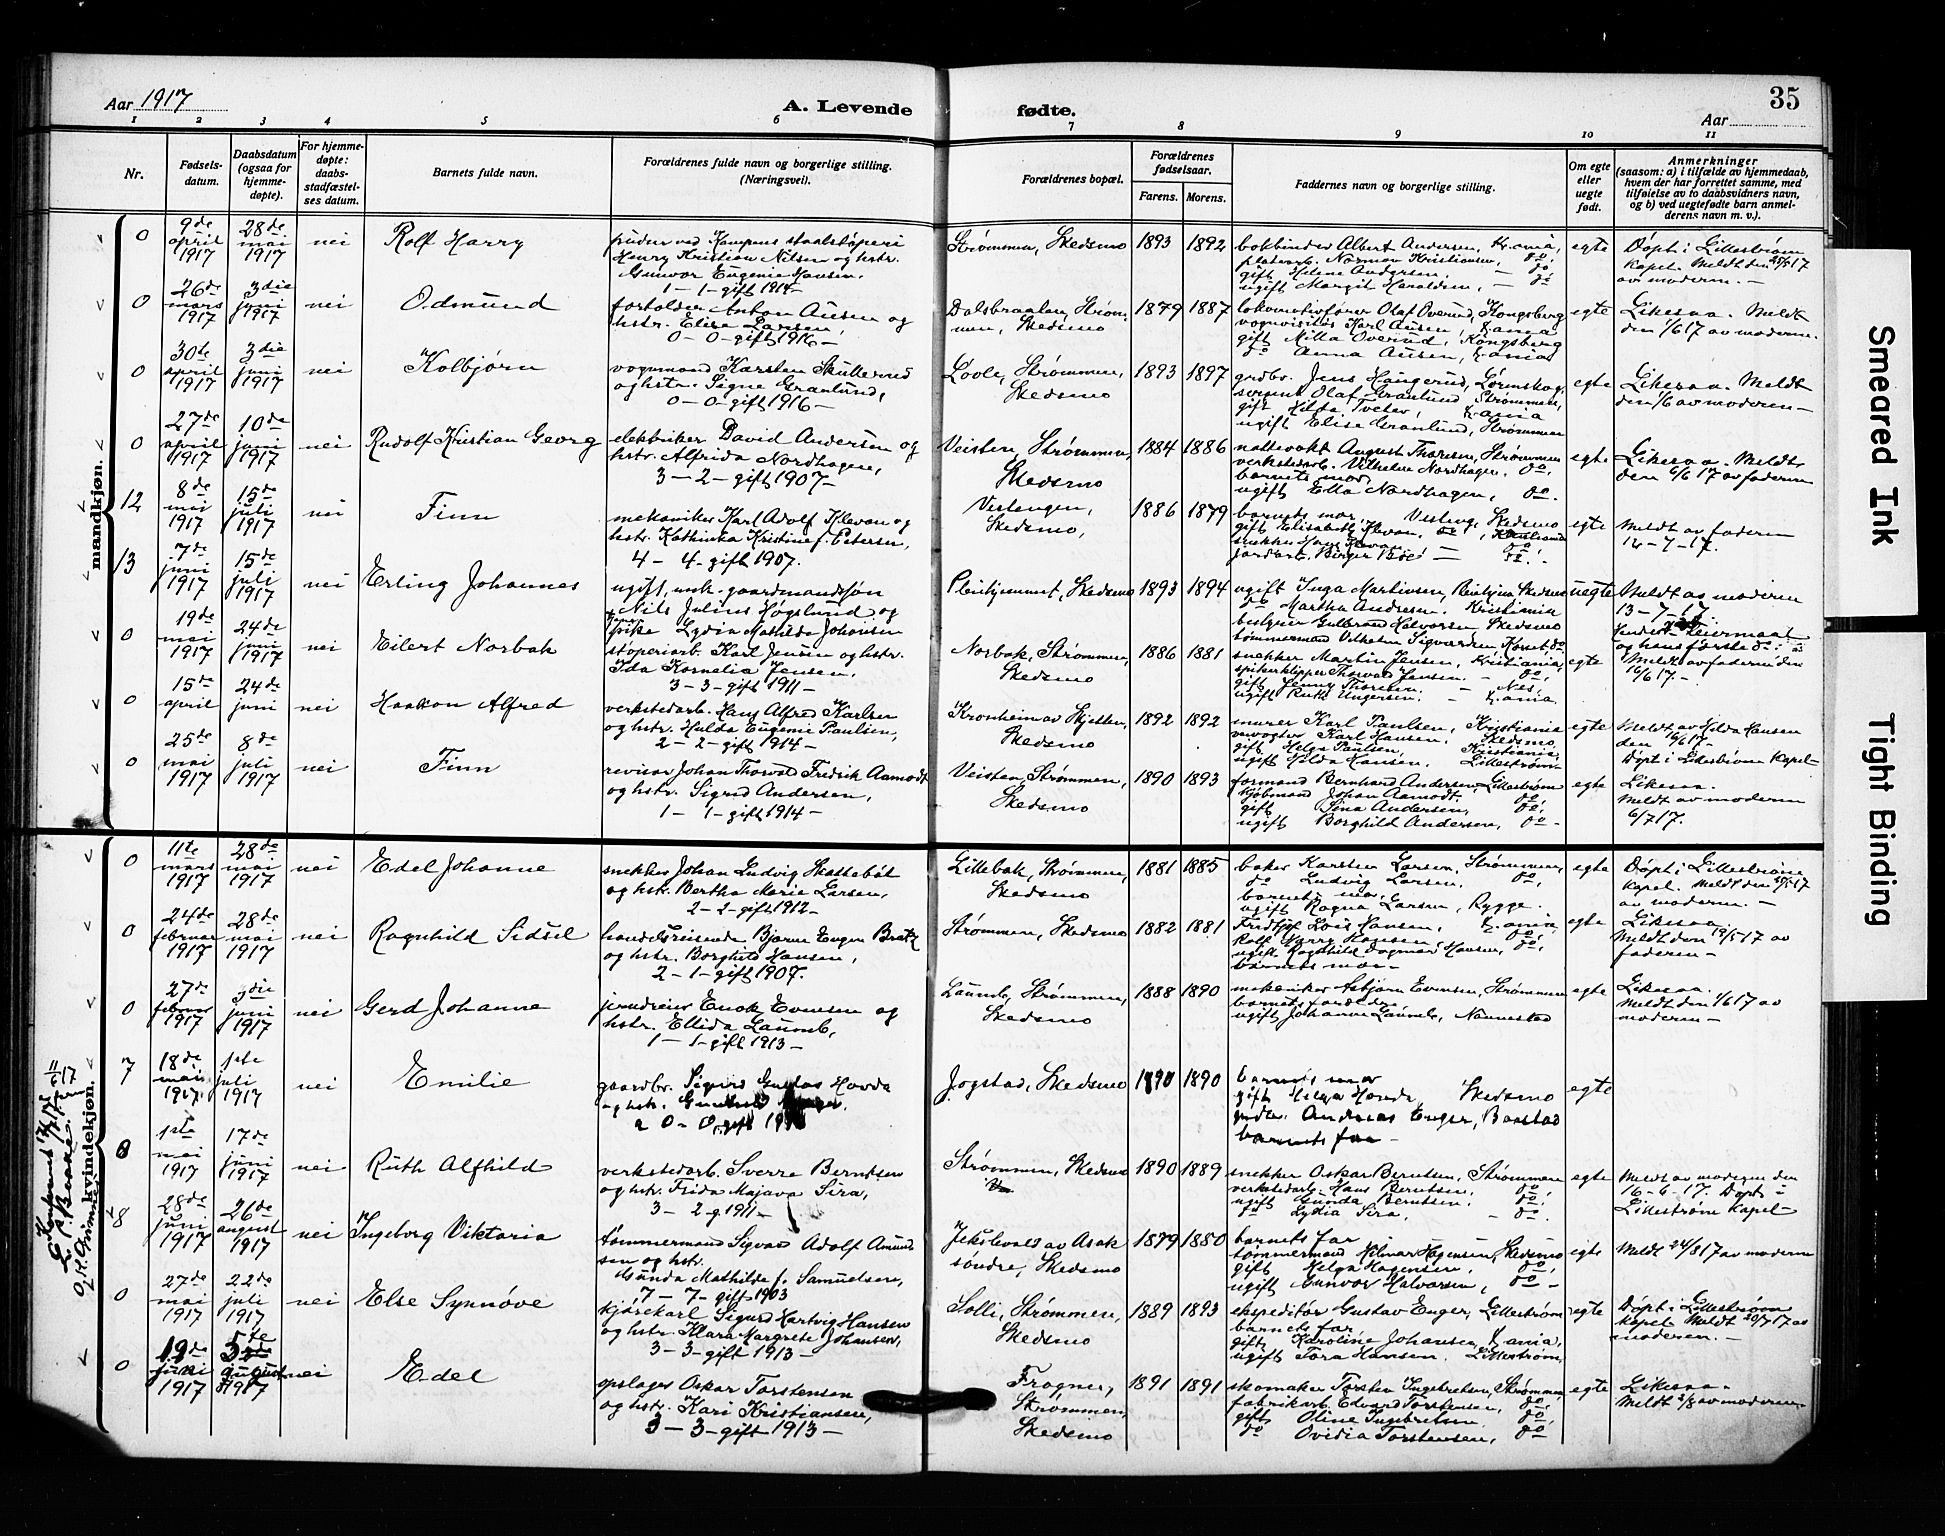 Aar 1917
A. Levende fødte.
35
Aar
1 2 3 4 5 6 7 8 9 10 11
Nr.
Fødsels-
datum.
Daabsdatum
(ogsaa for
hjemme-
døpte).
For hjemme-
døpte:
daabs-
stadfæstel-
ses datum.
Barnets fulde navn.
Forældrenes fulde navn og borgerlige stilling.
(Næringsvei).
Forældrenes bopæl.
Forældrenes
fødselsaar.
Farens. Morens.
Faddernes navn og borgerlige stilling.
Om egte
eller
uegte
født.
Anmerkninger
(saasom: a) i tilfælde av hjemmedaab,
hvem der har forrettet samme, med
tilføielse av to daabsvidners navn,
og b) ved uegtefødte barn anmel-
derens navn m. v.).
mandkjøn.
0
9de
april
1917
28de
mai
1917
nei
Rolf Harry
Henry Kristian Nilsen og hstr.
Gunvor Eugenie Hansen.
1 – 1 – gift 1914 –
Strømmen, Skedsmo
1893 1892
bokbinder Albert Andersen, Kr.ania,
platearb. Norman Kristiansen, do,
gift Helene Andersen, – do
ugift Margit Haraldsen, – do
egte
Døpt i Lillestrøm
kapel. Meldt den 25/5 17
av moderen. –
0
26de
mars
1917
3die
juni
1917
nei
Odmund
forholder Anton Ausen og
hstr. Elise Larsen,
0 – 0 – gift 1916 –
Dalsbraaten, Strøm-
men, Skedsmo
1879 1887
lokomotivfører Olaf Overud, Kongsberg
vognvisitør Karl Ausen, Kr.ania
gift Milla Overud, Kongsberg
do Anna Ausen, Kr.ania
egte
Likesaa. Meldt
den 1/6 17 av moderen.
0
30te
april
1917
3die
juni
1917
nei
Kolbjørn
vognmand Karsten Skullerud
og hstr. Signe Granlund,
0 – 0 – gift 1916 –
Strømmen,
Skedsmo
1893 1897
grdbr. Jens Haugerud, Lørenskog,
Olaf Granlund, Strømmen,
gift Hilda Tveter, Kr.ania
ugift Elise Granlund, Strømmen
egte
Likesaa. Meldt
den 1/6 av moderen –
0
27de
april
1917
10de
juni
1917
nei
Rudolf Kristian Georg
elektriker David Andersen og
hstr. Alfrida Nordhagen,
3 – 2 – gift 1907 –
Veisten, Strømmen,
Skedsmo
1884 1886
nattevakt August Thoresen, Strømmen
verkstedarb. Vilhelm Nordhagen, do,
barnets mor
ugift Ella Nordhagen, do.
egte
Likesaa. Meldt
den 6/6 17 av faderen
12
8de
mai
1917
15de
juli
1917
nei
Finn
mekaniker Karl Adolf Klevan og
hstr. Kathinka Kristine f. Petersen,
4 – 4 – gift 1907.
Vestengen,
Skedsmo,
1886 1879
barnets mor Vesteng, Skedsmo
gift Elisabeth Klevan, do,
snekker Hans Klevan do
jordarb. Birger Bøe – do.
egte
Meldt av faderen
14 – 7 – 17.
13
7de
juni
1917
15de
juli
1917
nei
Erling Johannes
ugift, unk. gaardmandssøn
Nils Julius Høgslund og
pike Lydia Mathilde Johansen
Pleiehjemmet, Skedsmo
1893 1894
ugift Inga Martinsen, Pleiehjem Skedsmo
do Martha Andresen. Kristiania
bestyrer Gulbrand Halvorsen Skedsmo
tømmermand Vilhelm Sigvardsen, Korset, do
uegte
Meldt av moderen
13 – 7 – 17.
Hendes leiermaal
og hans første do.
0
19de
mai
1917
24de
juni
1917
nei
Eilert Norbak
støperiarb. Karl Jensen og hstr.
Ida Kornelia Jensen.
3 – 3 – gift 1911 –
Norbak, Strømmen,
Skedsmo
1886 1881
snekker Martin Jensen, Kristiania,
spikerklipper Thorvald Jensen. – do,
gift Jenny Thoresen. – Nes
ugift Ruth Ungersen. – Kr.ania
egte
Meldt av faderen den
16/6 17. –
0
15de
april
24de
juni
nei
Haakon Alfred
verkstedarb. Hans Alfred Karlsen
og hstr. Hulda Eugenie Paulsen,
2 – 2 – gift 1914 –
Kronheim av Skjetten,
Skedsmo
1892 1892
murer Karl Paulsen, Kristiania
Karl Hansen. Skedsmo
gift Helga Paulsen, Kristiania,
ugift Hilda Hansen. Lillestrøm
egte
Meldt av Hilda Hansen
den 16/6 17 –
Døpt i Lillestrøm kapel –
0
25de
mai
1917
8de
juli
1917
nei
Finn
revisor Johan Thorvald Fredrik Aamodt
og hstr. Sigrid Andersen,
1 – 1 – gift 1914 –
Veisten, Strømmen,
Skedsmo
1890 1893
formand Bernhard Andersen, Lillestrøm
kjøbmand Johan Aamodt. do,
gift Sina Andersen, do,
ugift Borghild Andersen, do –
egte
Likesaa.
Meldt av moderen
6/7 17.
kvindekjøn.
0
11te
mars
1917
28de
mai
1917
nei
Edel Johanne
snekker Johan Ludvig Skattebøl
og hstr. Bertha Marie Larsen,
2 – 2 – gift 1912 –
Lillebak, Strømmen,
Skedsmo
1881 1885
baker Karsten Larsen, Strømmen,
do Ludvig Larsen. do,
barnets mor,
ugift Ragna Larsen, Rygge.
egte
Døpt i Lillestrøm
kapel. Meldt den 20/5 17
av moderen. –
0
24de
februar
1917
28de
mai
1917
nei
Ragnhild Sidsel
handelsreisende Bjarne Eugen Bratz
og hstr. Borghild Hansen,
2 – 1 – gift 1907.
Strømmen, Skedsmo
1882 1881
Fridtjof Lois Hansen, Kr.ania
Rolf Harry Hansen, do,
ugift Ragnhild Dagmar Hansen, do,
barnets mor –
egte
Likesaa
Meldt den 19/5 17 av
faderen –
0
27de
februar
1917
3die
juni
1917
nei
Gerd Johanne
jerndreier Enok Evensen og
hstr. Ellida Laumb,
1 – 1 – gift 1913 –
Laumb, Strømmen,
Skedsmo
1888 1890
mekaniker Asbjørn Evensen, Strømmen
barnets forældre,
ugift Johanne Laumb, Nannestad
egte
Likesaa.
Meldt den 1/6 17 av
moderen –
7
18de
mai
1917.
1ste
juli
1917
nei
Emilie
gaardbr. Sigurd Gustav Hovde
og hstr.
0 – 0, gift
Jogstad, Skedsmo
1890 1890
barnets mor
gift Helga Hovde, Skedsmo
grdbr. Andreas Enger, Baastad
barnets far –
egte
0
1ste
mai
1917
17de
juni
1917
nei
Ruth Alfhild
verkstedarb. Sverre Berntsen
og hstr. Frida Majava Sira,
3 – 2 g. 1911 –
Strømmen, Skedsmo
1890 1889
snekker Oskar Berntsen, Strømmen
verkstedarb. Hans Berntsen, do,
ugift Gunda Berntsen do,
do Lydia Sira, – do.
egte
Meldt av moderen den
16 – 6 – 17. Døpt i
Lillestrøm kapel –
8
28de
juni
1917
26de
august
1917
nei
Ingeborg Viktoria
tømmermand Sigvard Adolf Amund-
sen og hstr.
Gunda Mathilde f. Samuelsen,
7 – 7 – gift 1903
Jekslevold av Asak
søndre, Skedsmo
1879 1880
barnets far
tømmermand Hilmar Hagensen, Skedsmo
gift Helga Hagensen, do
ugift Gunvor Halvorsen, do –
egte
Meldt 24/8 17 av moderen
0
27de
mai
1917
22de
juli
1917
nei
Else Synnøve
kjørekarl Sigurd Hartvig Hansen
og hstr. Klara Margrete Johansen,
3 – 3 – gift 1913 –
Solli, Strømmen,
Skedsmo
1889 1893
ekspeditør Gustav Enger, Lillestrøm
barnets far,
gift Karoline Johansen, Kr.ania,
ugift Tora Hansen. Lillestrøm,
egte
Døpt i Lillestrøm
kapel Meldt 20/7 17 av
moderen. –
0
19de
juni
1917
5te
august
1917
nei
Edel
opslager Oskar Torstensen
og hstr. Kari Kristiansen,
3 – 3 – gift 1913 –
Frogner,
Strømmen,
Skedsmo
1891 1891
skomaker Torsten Ingebretsen, Strømmen,
fabrikarb. Edvard Torstensen, do,
gift Oline Ingebretsen. do,
do Ovidia Torstensen, do
egte
Likesaa.
Meldt 3/8 av moderen.
Smeared Ink
Tight Binding